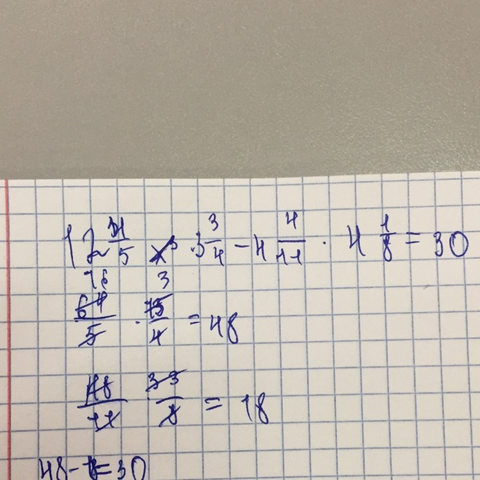 12 4/5 · 3 3/4 - 4 4/11 · 4 1/8 = 30
16 3
64/5 · 15/4 = 48
48/11 33/8 = 18
48 - = 30